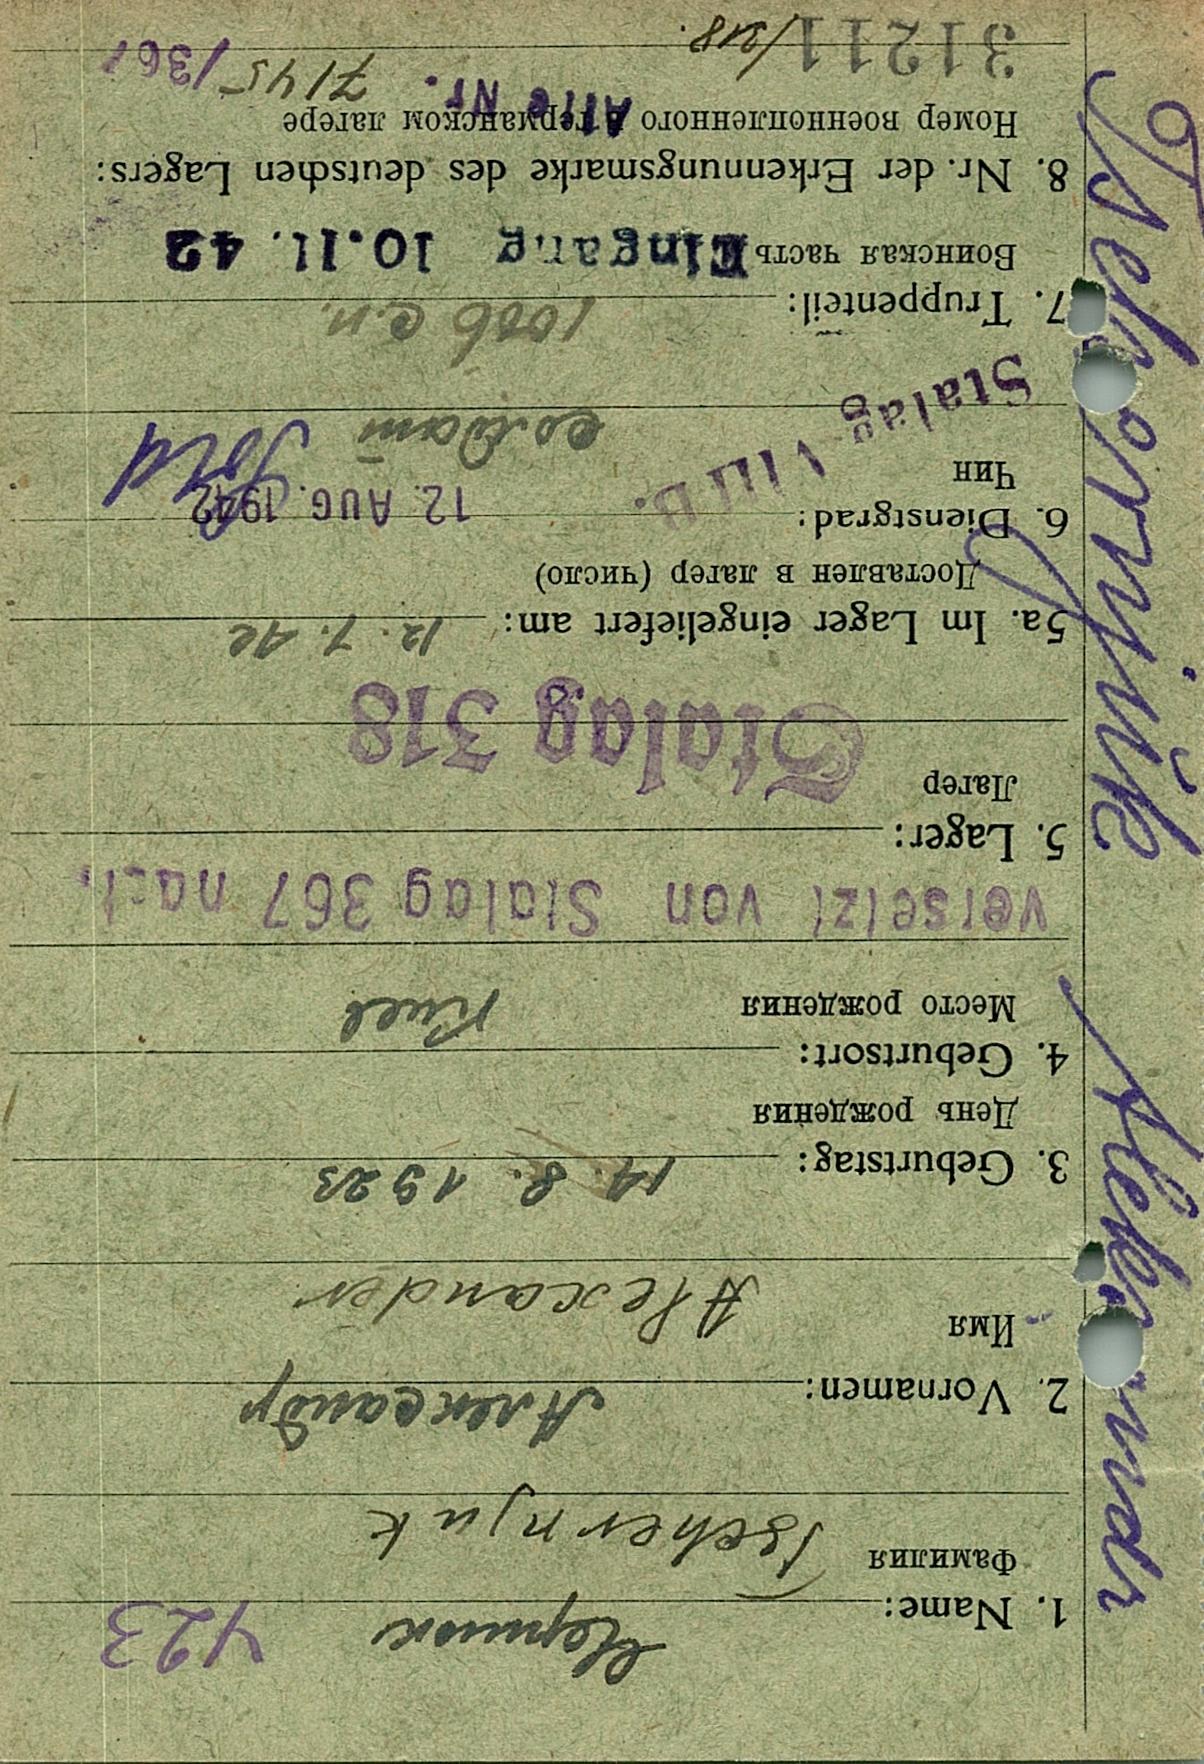 Tschernjuk Aleksandr
423
Чернюк
1. Name:
Фамилия
Tschernjuk
2. Vornamen: Александр
Имя
Alexander
3. Geburtstag: 14. 8. 1923
День рождения
4. Geburtsort:
Место рождения Киев
versetzt von Stalag 367 nach
5. Lager:
Лагер
Stalag 318
5a. Im Lager eingeliefert am: 12. 7. 42
Доставлен в лагер (число)
6. Dienstgrad: 12. AUG. 1942
Чин солдат Sold
Stalag VIII B.
7. Truppenteil: 1006 с.п.
Воинская часть Eingang 10. 11. 42
8. Nr. der Erkennungsmarke des deutschen Lagers:
Номер военнопленного в германском лагере
Alte Nr. 7145/367
31211/318.